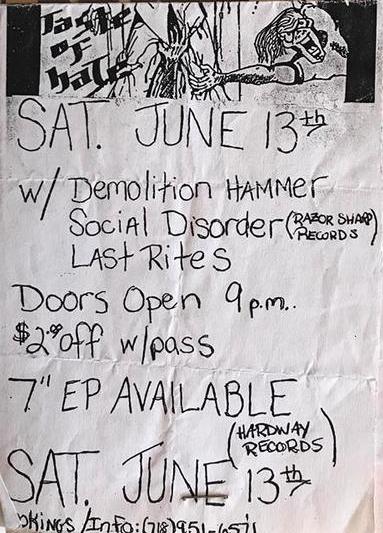 Taste
of
hate
SAT. JUNE 13th
w/ Demolition HAMMER
Social Disorder (RAZOR SHARP
RECORDS)
LAST RiteS
Doors Open 9 p.m..
$2.00 off w/pass
7" EP AVAILABLE
(HARDWAY
RECORDS)
SAT. JUNE 13th
OKINGS/InFo:(718)951-6571